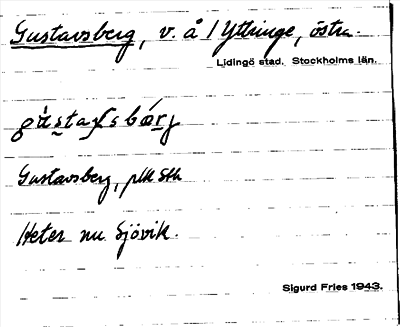 Gustavsberg, v. å 1 Yttringe, östra.
Lidingö stad. Stockholms län.
Gustavsberg, plk Sth
Heter nu Sjövik.
Sigurd Fries 1943.